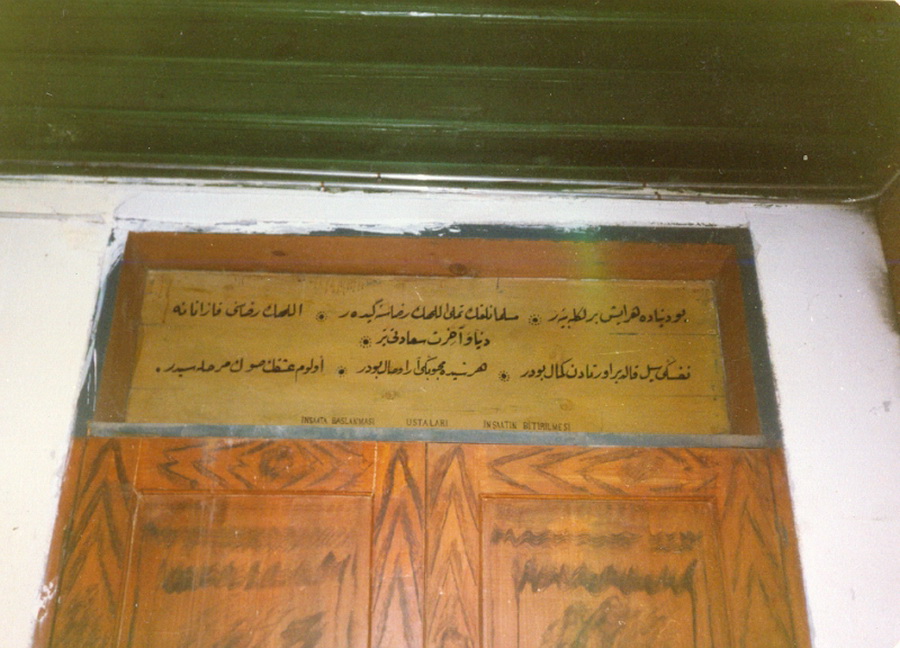 بو دنیاده هر ایش بر مسلمانلغك تملی اللهك رضاسنه گیده ر ۞ اللهك رضاسی قازانانه
دنیا و آخرت سعادتی ۞
نفسكی بیل قالدیر اورتادن كمال بودر ۞ هر نسیده محبوبكی آرا وصال بودر ۞ اولوم عشقك صوك مرحله سیدر.
İNŞAATA BAŞLANMASI USTALARI İNŞAATIN BİTİRİLMESİ